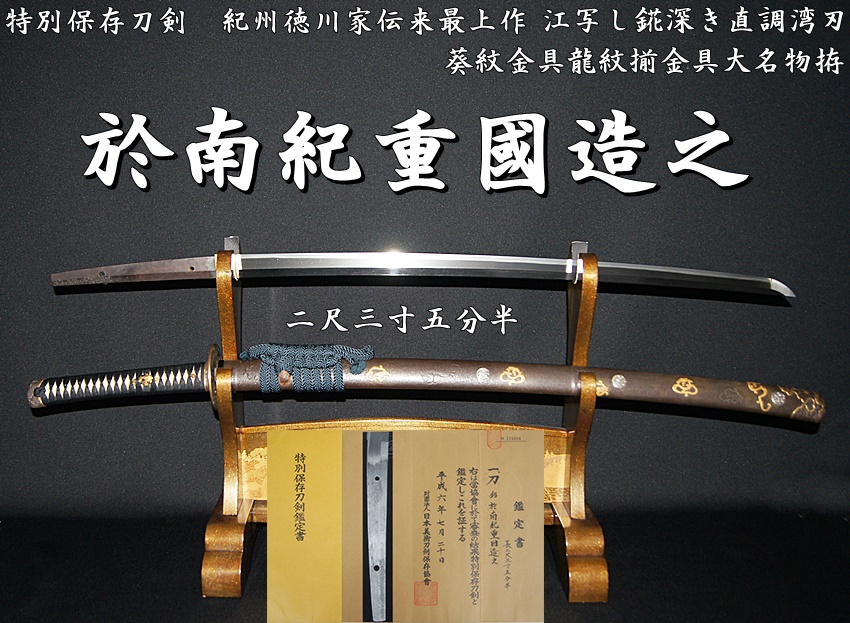 特別保存刀剣　紀州徳川家伝来最上作 江写し錵深き直調湾刃
葵紋金具龍紋揃金具大名物拵
於南紀重國造之
二尺三寸五分半
特別保存刀剣鑑定書
鑑定書
一刀 銘 於南紀重国造之
長二尺三寸五分半
右は当協會に於て審査の結果特別保存刀剣と
鑑定しこれを証する
平成六年七月二十日
財団法人日本美術刀剣保存協會